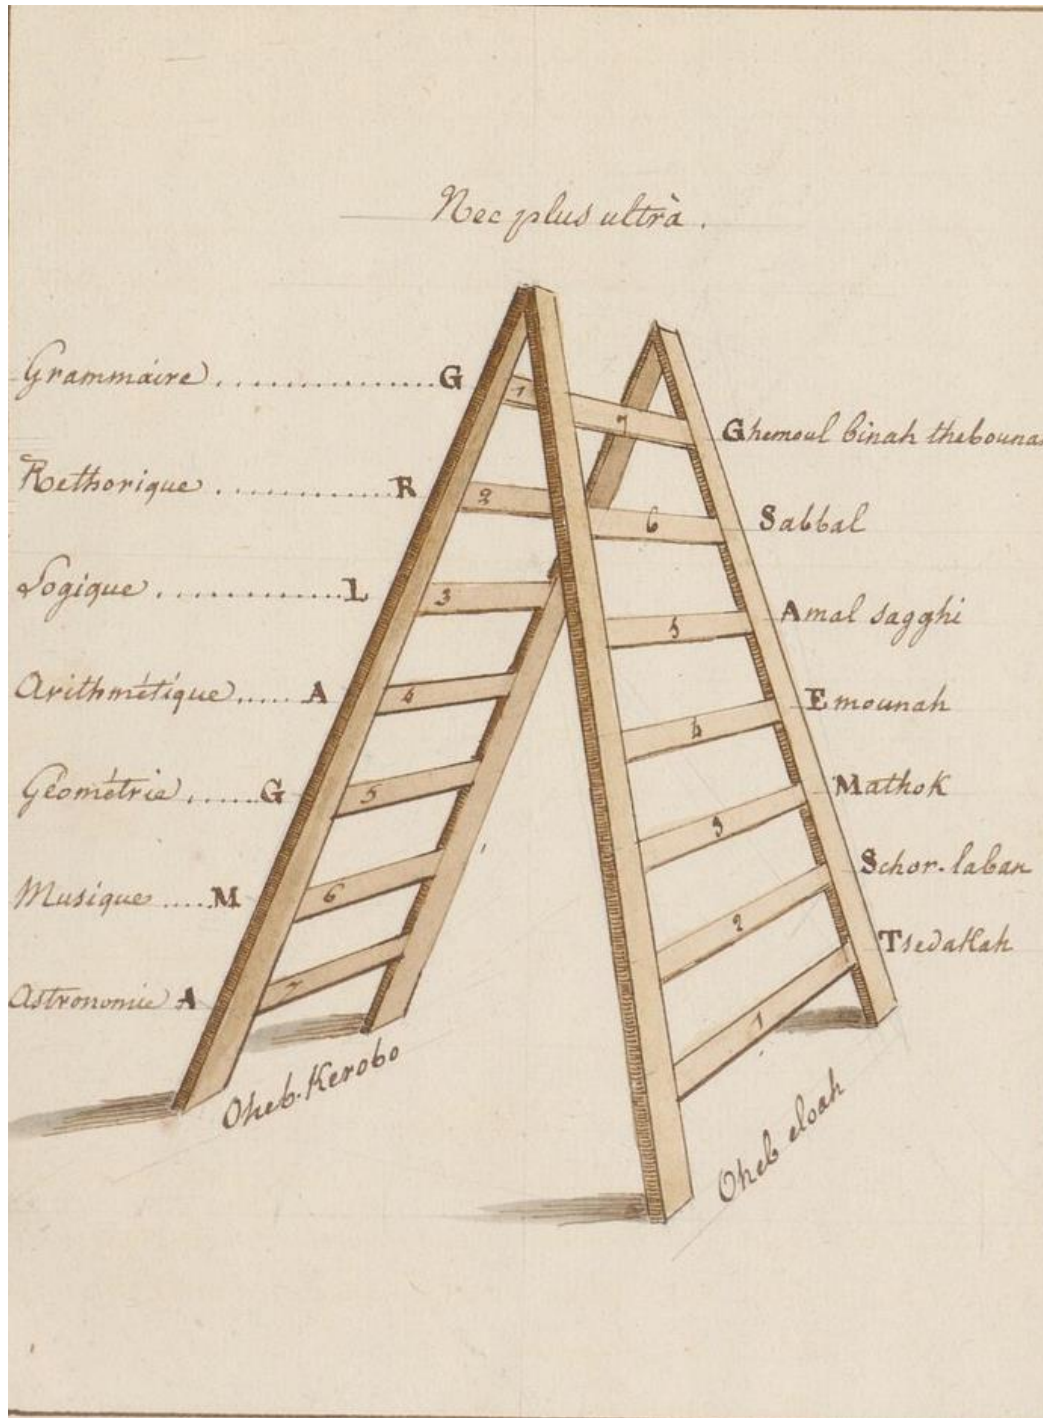 Nec plus ultrà.
Grammaire ................ G
Rethorique ............... R
Logique ............. L
Arithmétique ..... A
Géométrie ..... G
Musique ..... M
Astronomie A
1
2
3
4
5
6
7
Oheb. Kerobo
7
6
5
4
3
2
1
Ghemoul binah thebounah
Sabbal
Amal sagghi
Emounah
Mathok
Schor-laban
Tsedakah
Oheb eloah